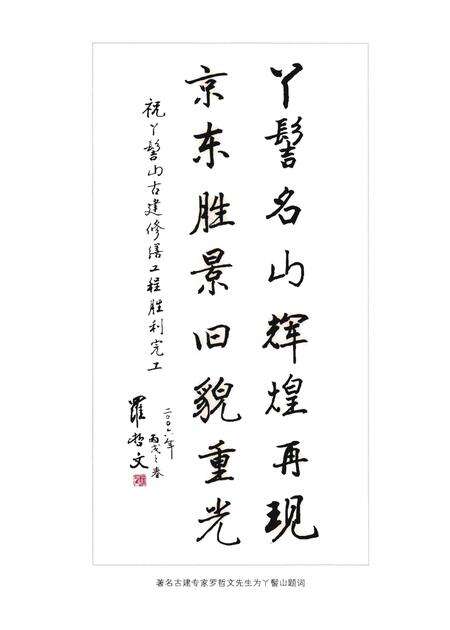 丫髻名山辉煌再现
京东胜景旧貌重光
祝丫髻山古建修缮工程胜利完工
二〇〇六年
丙戌之春
罗哲文
著名古建专家罗哲文先生为丫髻山题词